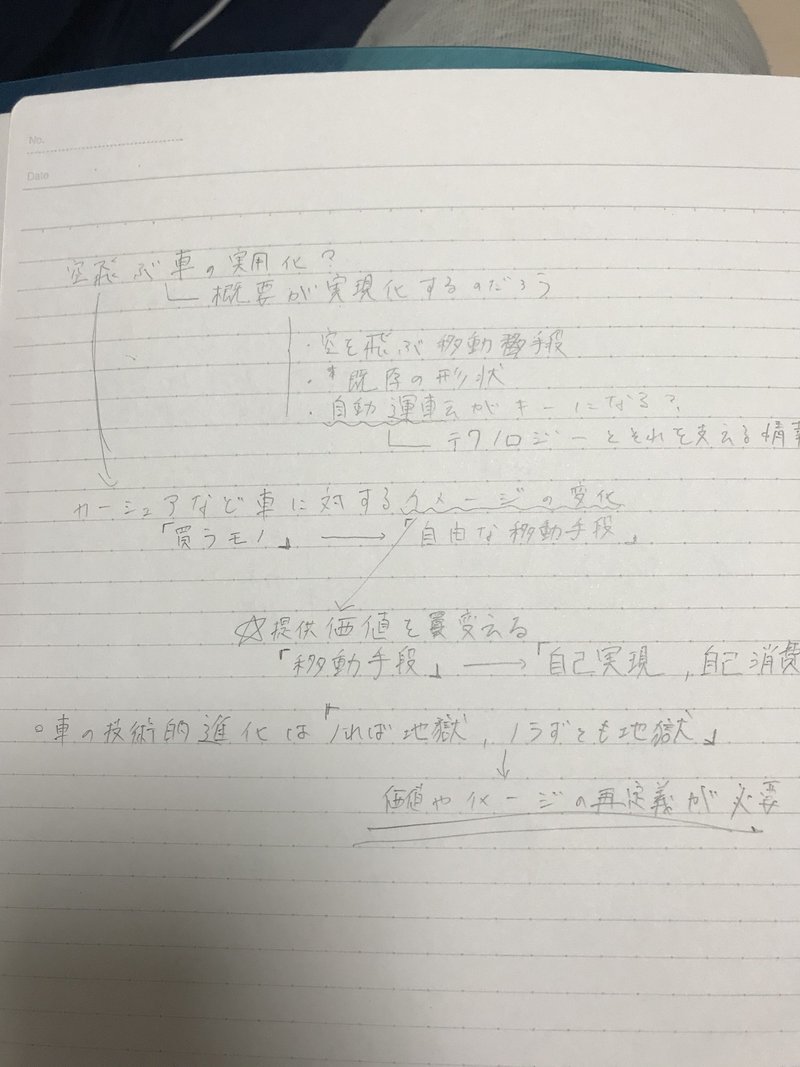 No.
Date
空飛ぶ車の実用化?
概要が実現化するのだろう
・空を飛ぶ移動手段
・*既存の形状
・自動運転がキーになる?
テクノロジーとそれを支える情報
カーシェアなど車に対するイメージの変化
「買うモノ」→「自由な移動手段」
☆提供価値を変える
「移動手段」→「自己実現,自己消費
○車の技術的進化は「いれば地獄,いらずとも地獄」
↓
価値やイメージの再定義が必要